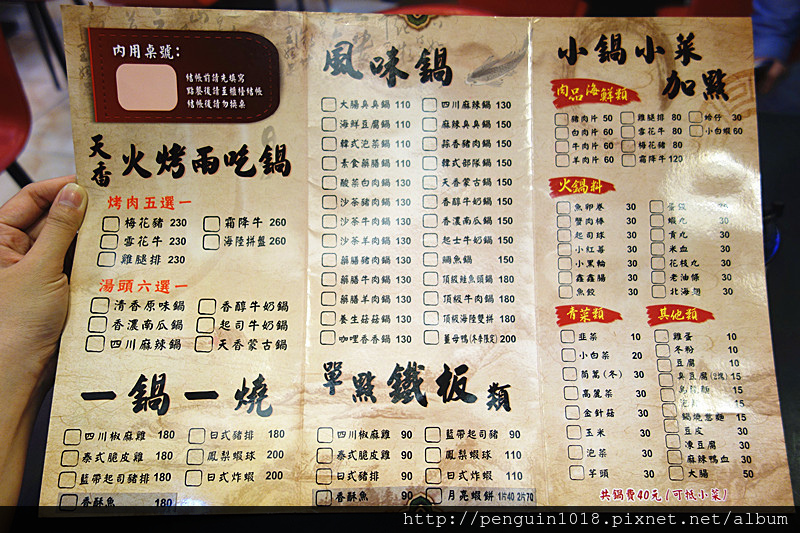 內用桌號：
結帳前請先填寫
點餐後請至櫃檯結帳
結帳後請勿換桌
天香 火烤兩吃鍋
烤肉五選一
梅花豬 230
霜降牛 260
雪花牛 230
海陸拼盤 260
雞腿排 230
湯頭六選一
清香原味鍋
香醇牛奶鍋
香濃南瓜鍋
起司牛奶鍋
四川麻辣鍋
天香蒙古鍋
一鍋一燒
四川椒麻雞 180
日式豬排 180
泰式脆皮雞 180
鳳梨蝦球 200
藍帶起司豬排 180
日式炸蝦 200
香酥魚 180
風味鍋
大腸臭臭鍋 110
四川麻辣鍋 130
海鮮豆腐鍋 110
麻辣臭臭鍋 130
韓式泡菜鍋 110
蒜香豬肉鍋 150
素食藥膳鍋 110
韓式部隊鍋 150
酸菜白肉鍋 130
天香蒙古鍋 150
沙茶豬肉鍋 130
香醇牛奶鍋 150
沙茶牛肉鍋 130
香濃南瓜鍋 150
沙茶羊肉鍋 130
起士牛奶鍋 150
藥膳豬肉鍋 130
鯛魚鍋 150
藥膳牛肉鍋 130
頂級鮭魚頭鍋 180
藥膳羊肉鍋 130
頂級牛肉鍋 180
養生菇菇鍋 130
頂級海陸雙拼 180
咖哩香香鍋 130
薑母鴨(冬季限定) 200
單點鐵板類
四川椒麻雞 90
藍帶起司豬 90
泰式脆皮雞 90
鳳梨蝦球 110
日式豬排 90
日式炸蝦 110
香酥魚 90
月亮蝦餅 1片40 2片70
小鍋小菜加點
肉品海鮮類
豬肉片 50
雞腿排 80
蛤仔 30
白肉片 60
雪花牛 80
小白蝦 60
牛肉片 60
梅花豬 80
羊肉片 60
霜降牛 120
火鍋料
魚卵卷 30
蛋餃 30
蟹肉棒 30
蝦丸 30
起司球 30
貢丸 30
小紅莓 30
米血 30
小黑輪 30
花枝丸 30
鑫鑫腸 30
老油條 30
魚餃 30
北海翅 30
青菜類
韭菜 10
小白菜 20
茼蒿(冬) 30
高麗菜 30
金針菇 30
玉米 30
泡菜 30
芋頭 30
其他類
雞蛋 10
冬粉 10
豆腐 10
臭豆腐(2塊) 15
15
15
鍋燒意麵 15
豆皮 30
凍豆腐 30
麻辣鴨血 30
大腸 50
共鍋費40元(可抵小菜)
http://penguin1018.pixnet.net/album